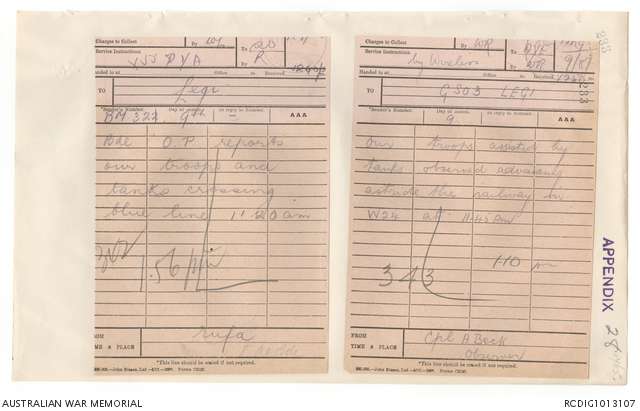 Charges to Collect
Service Instructions
By
To
By R
Handed in at
Office
Received
TO
Legi
*Sender's Number.
Day of Month.
In reply to Number.
AAA
BM 322
9th
—
Bde O.P. reports
our troops and
tanks crossing
blue line 11.20 am
1.56 pm
FROM
TIME & PLACE
rufa
*This line should be erased if not required.
Charges to Collect
Service Instructions
By WR
To
By WR
by Wireless
9/8
Handed in at
Office
Received
TO
GS03 LEGI
*Sender's Number.
Day of Month.
In reply to Number.
AAA
9
Our troops assisted by
tanks observed advancing
astride the railway in
W24 at 11.45 am
343
1·10 pm
FROM
TIME & PLACE
Cpl A Beck
Observer
*This line should be erased if not required.
233
APPENDIX
28
AUSTRALIAN WAR MEMORIAL
RCDIG1013107